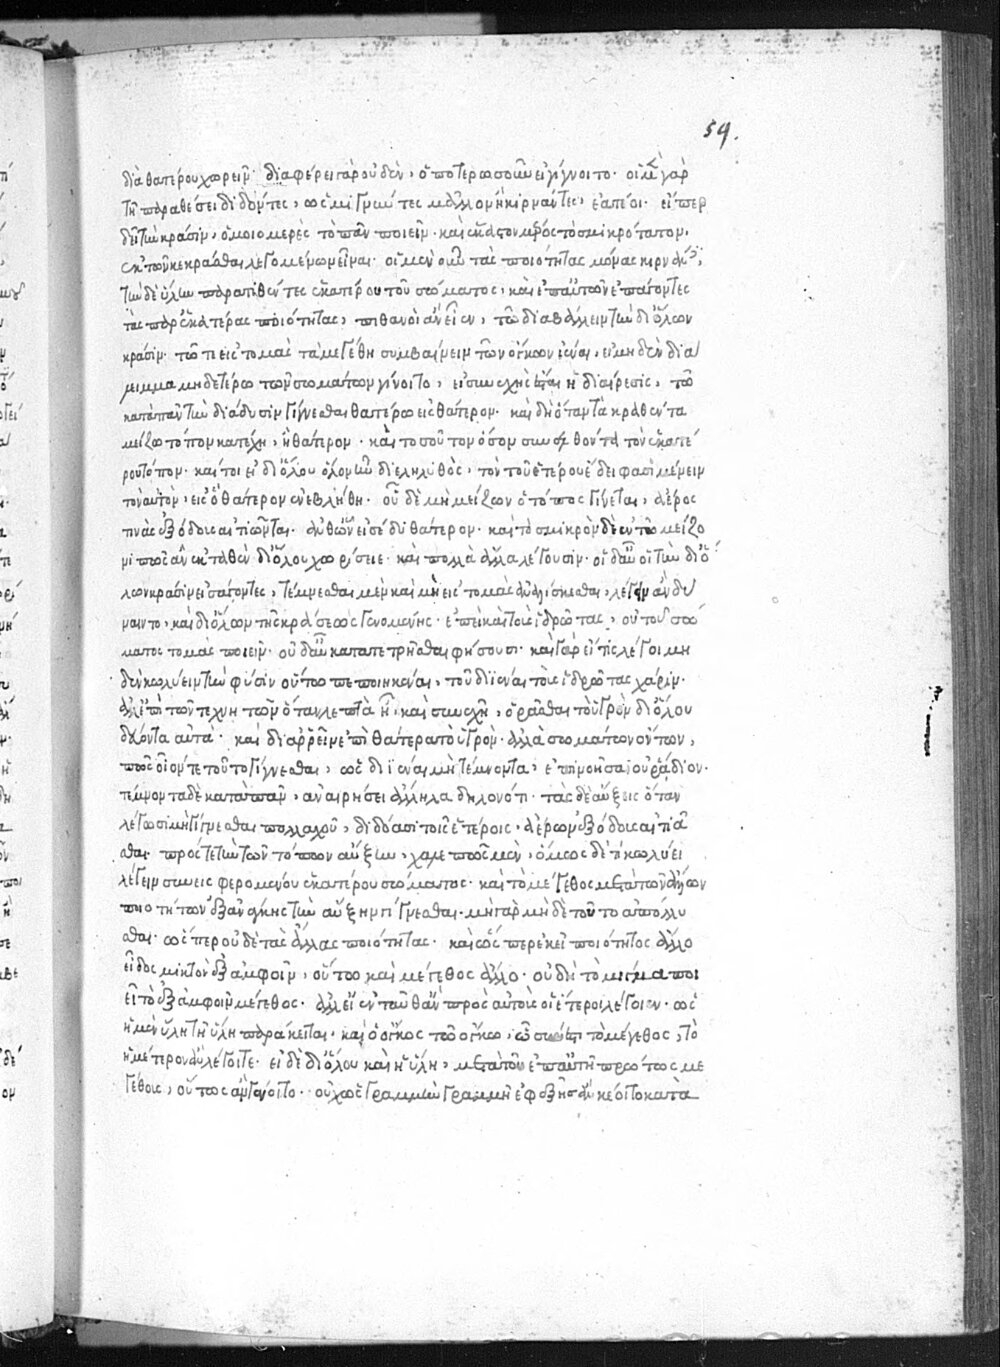 59.
διὰ θατέρου χωρεῖν· διαφέρει γὰρ οὐδὲν, ὁποτέρως οὖν εἰ γίγνοιτο· οἱ μὲν γὰρ
τῇ παραθέσει διδόντες, ὡς μιγνύντες μᾶλλον ἢ κιρνάντες, ἐατέοι· εἴπερ
δεῖ τὴν κρᾶσιν, ὁμοιομερὲς τὸ πᾶν ποιεῖν· καὶ ἕκαστον μέρος τὸ σμικρότατον,
ἐκ τῶν κεκρᾶσθαι λεγομένων εἶναι· οἱ μὲν οὖν τὰς ποιότητας μόνας κιρνάντες,
τὴν δὲ ὕλην παρατιθέντες ἑκατέρου τοῦ σώματος, καὶ ἐπ' αὐτῶν ἐπάγοντες
τὰς παρ' ἑκατέρας ποιότητας, πιθανοὶ ἂν εἶεν, τῷ διαβάλλειν τὴν δι' ὅλων
κρᾶσιν· τῷ τε εἰς τομὰς τὰ μεγέθη συμβαίνειν τῶν ὄγκων ἰέναι, εἰ μηδὲν διά
λειμμα μηδετέρῳ τῶν σωμάτων γίνοιτο, εἰ συνεχὴς ἔσται ἡ διαίρεσις, τῷ
κατὰ πᾶν τὴν διάδυσιν γίγνεσθαι θατέρῳ εἰς θάτερον· καὶ δὴ ὅταν τὰ κραθέντα
μείζω τόπον κατέχῃ, ἢ θάτερον· καὶ τοσοῦτον ὅσον συνελθόντα τὸν ἑκατέ
ρου τόπον· καίτοι εἰ δι' ὅλου ὅλον ἦν διεληλυθὸς, τὸν τοῦ ἑτέρου ἔδει φασὶ μένειν
τὸν αὐτὸν, εἰς ὃ θάτερον ἐνεβλήθη· οὗ δὲ μὴ μείζων ὁ τόπος γίνεται, ἀέρος
τινὰς ἐξόδους αἰτιῶνται· ἀνθ' ὧν εἰσέδυ θάτερον· καὶ τὸ σμικρὸν δὲ ἐν τῷ μείζο
νι πῶς ἂν ἐκταθὲν δι' ὅλου χωρήσειε· καὶ πολλὰ ἄλλα λέγουσιν· οἱ δ' αὖ οἱ τὴν δι' ὅ
λων κρᾶσιν εἰσάγοντες, τέμνεσθαι μὲν καὶ μὴ εἰς τομὰς ἀναλίσκεσθαι, λέγειν ἂν δύ
ναιντο, καὶ δι' ὅλων τῆς κράσεως γενομένης· ἐπεὶ καὶ τοὺς ἱδρῶτας, οὐ τοῦ σώ
ματος τομὰς ποιεῖν· οὐδ' αὖ κατατετρῆσθαι φήσουσι· καὶ γὰρ εἴ τις λέγοι μη
δὲν κωλύειν τὴν φύσιν οὕτω πεποιηκέναι, τοῦ διϊέναι τοὺς ἱδρῶτας χάριν·
ἀλλ' ἐπὶ τῶν τεχνητῶν ὅταν λεπτὰ ᾖ καὶ συνεχῆ, ὁρᾶσθαι τὸ ὑγρὸν δι' ὅλου
δεῦον αὐτά· καὶ διαρρεῖν ἐπὶ θάτερα τὸ ὑγρόν· ἀλλὰ σωμάτων ὄντων,
πῶς οἷόν τε τοῦτο γίγνεσθαι, ὡς διϊέναι μὴ τέμνοντα, ἐπινοῆσαι οὐ ῥᾴδιον·
τέμνοντα δὲ κατὰ πᾶν, ἀναιρήσει ἄλληλα δηλονότι· τὰς δὲ αὔξεις ὅταν
λέγωσι μὴ γίγνεσθαι πολλαχοῦ, διδόασι τοῖς ἑτέροις, ἀέρων ἐξόδους αἰτιᾶ
σθαι· πρός τε τὴν τῶν τόπων αὔξην, χαλεπῶς μὲν, ὅμως δὲ τί κωλύει
λέγειν συνεισφερομένου ἑκατέρου σώματος· καὶ τὸ μέγεθος μετὰ τῶν ἄλλων
ποιοτήτων ἐξ ἀνάγκης τὴν αὔξην γίγνεσθαι· μὴ γὰρ μηδὲ τοῦτο ἀπόλλυ
σθαι· ὥσπερ οὐδὲ τὰς ἄλλας ποιότητας· καὶ ὥσπερ ἐκεῖ ποιότητος ἄλλο
εἶδος μικτὸν ἐξ ἀμφοῖν, οὕτω καὶ μέγεθος ἄλλο· οὗ δὴ τὸ μίγμα ποι
εῖ τὸ ἐξ ἀμφοῖν μέγεθος· ἀλλ' εἰ ἐνταῦθ' ἂν πρὸς αὐτοὺς οἱ ἕτεροι λέγοιεν, ὡς
ἡ μὲν ὕλη τῇ ὕλῃ παράκειται· καὶ ὁ ὄγκος τῷ ὄγκῳ, ᾧ σύνεστι τὸ μέγεθος, τὸ
ἡμέτερον ἂν λέγοιτε· εἰ δὲ δι' ὅλου καὶ ἡ ὕλη, μετὰ τοῦ ἐπ' αὐτῇ πρώτως με
γέθους, οὕτως ἂν γένοιτο· οὐχ ὡς γραμμὴ γραμμῇ ἐφεξῆς ἂν κέοιτο κατὰ